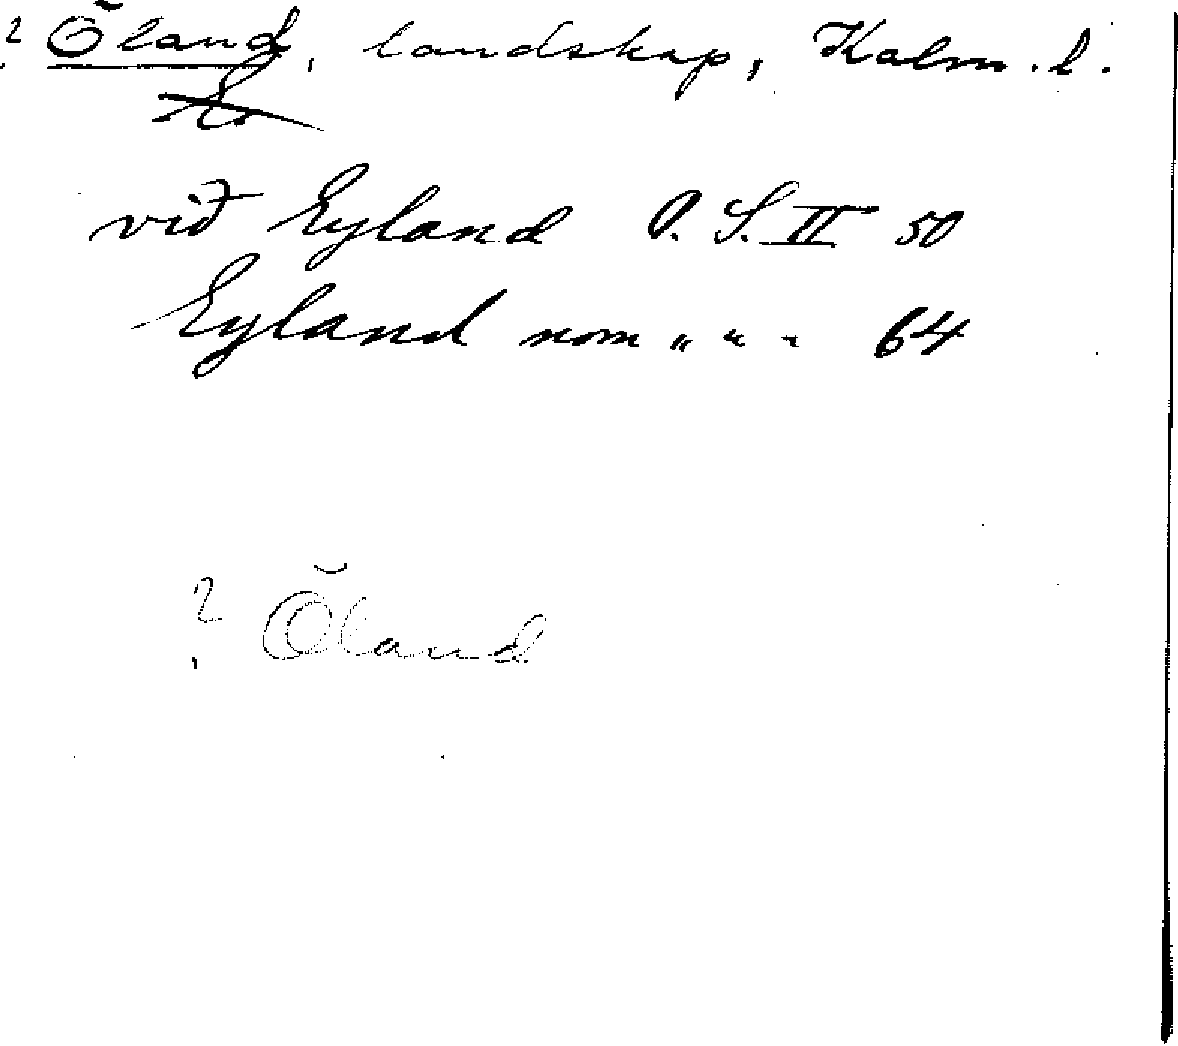 ? Öland, landskap, Kalm. l.
við Eyland O. S. II 50
Eyland nom „ “ - 64
? Öland